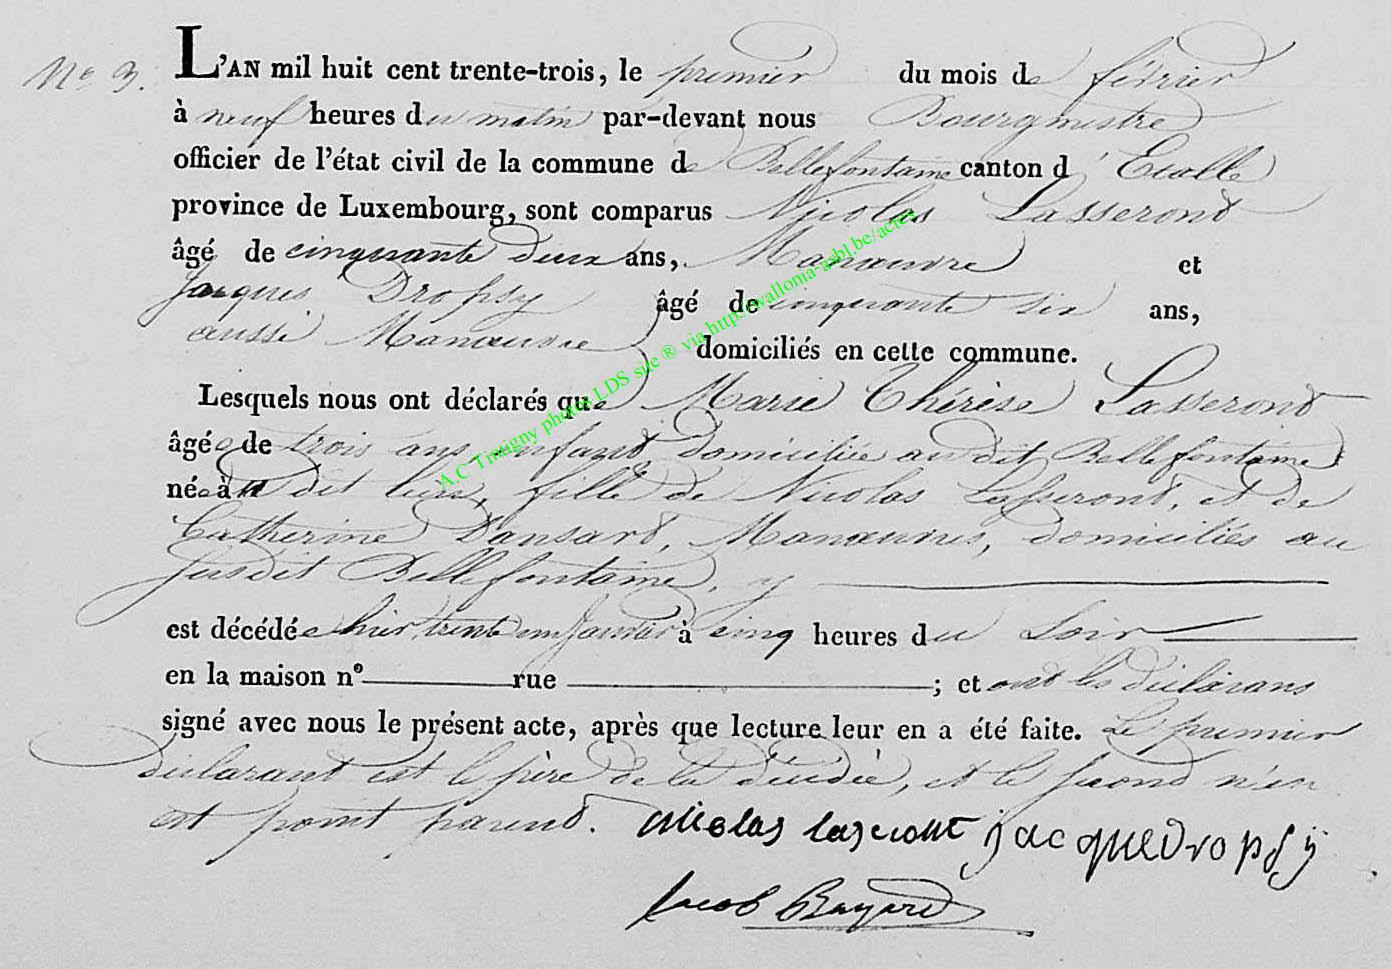 Nº 3. L'AN mil huit cent trente-trois, le premier du mois de février
à neuf heures du matin par-devant nous Bourgmestre
officier de l'état civil de la commune de Bellefontaine canton d'Etalle
province de Luxembourg, sont comparus Nicolas Lasseront
âgé de cinquante deux ans, Manœuvre et
Jacques Dropsy âgé de cinquante six ans,
aussi Manœuvre domiciliés en cette commune.
Lesquels nous ont déclarés que Marie Thérèse Lasseront
âgée de trois ans, enfant domiciliée au dit Bellefontaine
née à dit lieu, fille de Nicolas Lasseront, et de
Catherine Dansart, Manœuvres, domiciliés au
susdit Bellefontaine, y
est décédée hier trente un Janvier à cinq heures du Soir
en la maison nº rue ; et ont les déclarans
signé avec nous le présent acte, après que lecture leur en a été faite. Le premier
déclarant est le père de la décédée, et le second n'en
est point parent. nicolas lasseront jacque dropsÿ
Jacob Bayard
A.C Tintigny photos LDS site ® via http://wallonia-asbl.be/actes